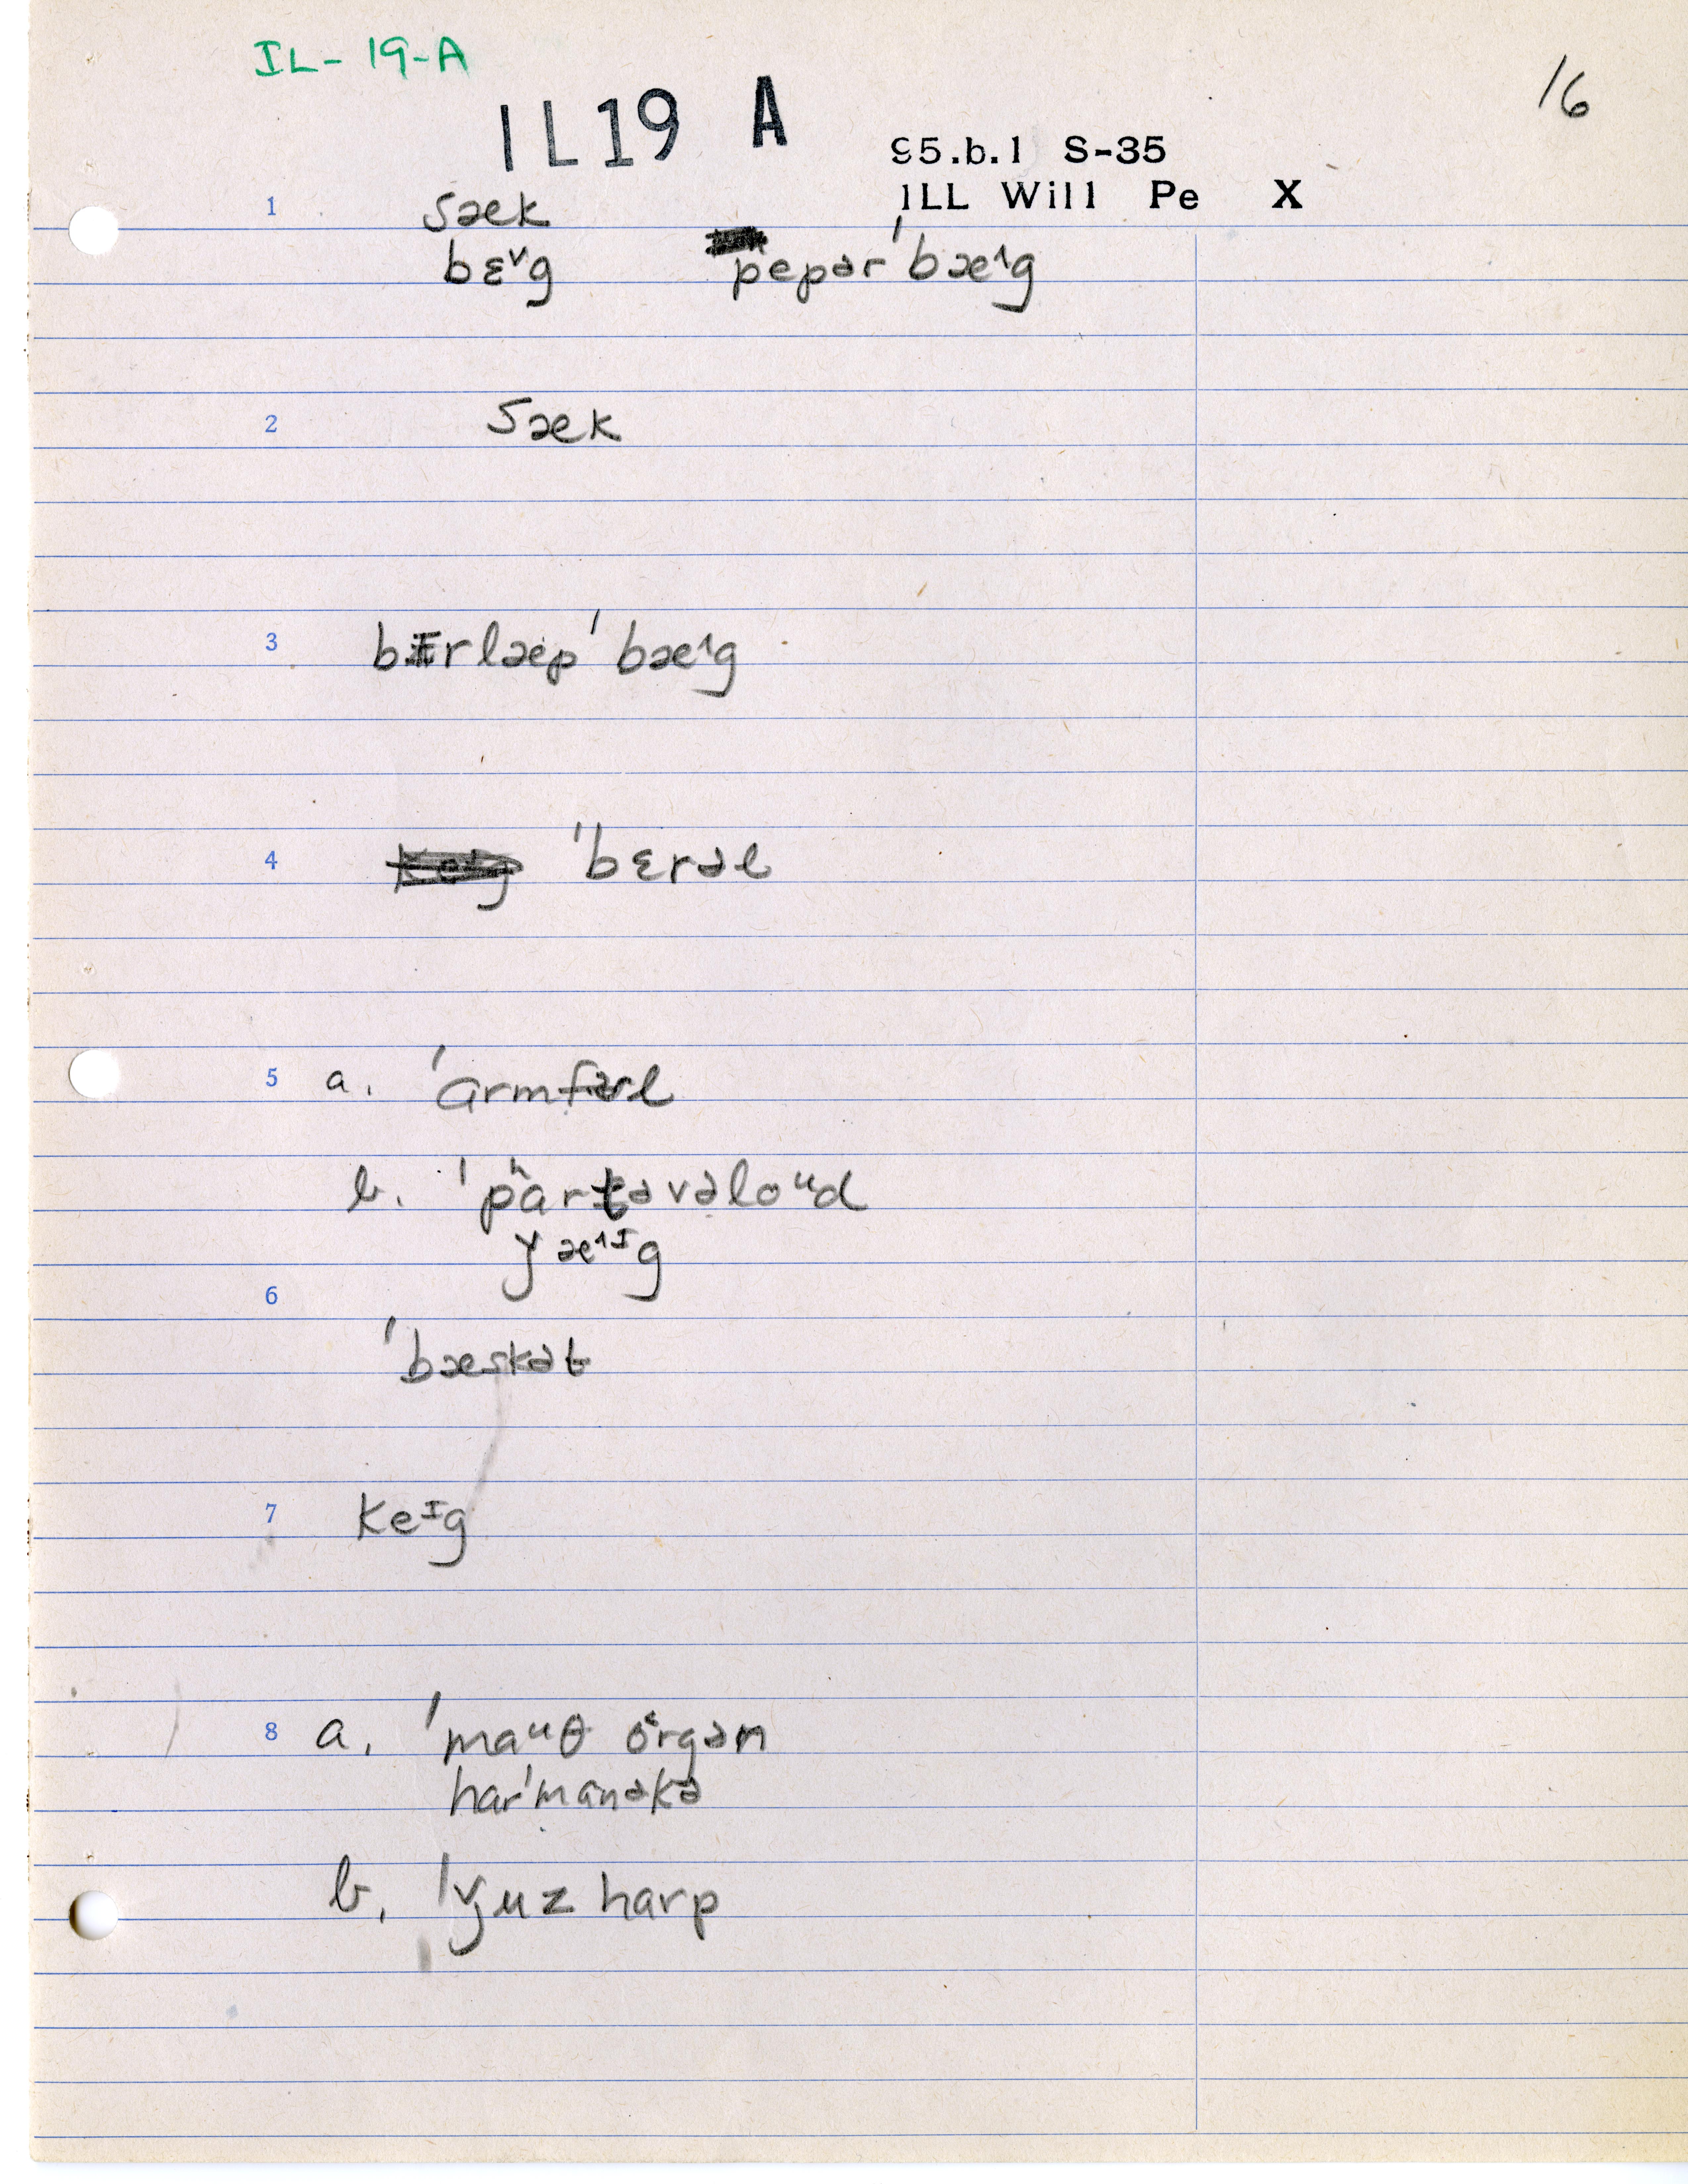 IL-19-A
16
IL19 A
95.b.1 S-35
ILL Will Pe X
1 sæk
bɛ˅g pepər ˈbæ˄g
2 sæk
3 bɪrlæp ˈbæ˄g
4 ˈbɛrəl
5 a. ˈarmfəl
b. ˈpʰartəvəloᵘd
ǰæ˄ᶦg
6
ˈbæskət
7 keᶦg
8 a. ˈmaᵘθ ɔrgən
harˈmanəkə
b. ˈǰuz harp